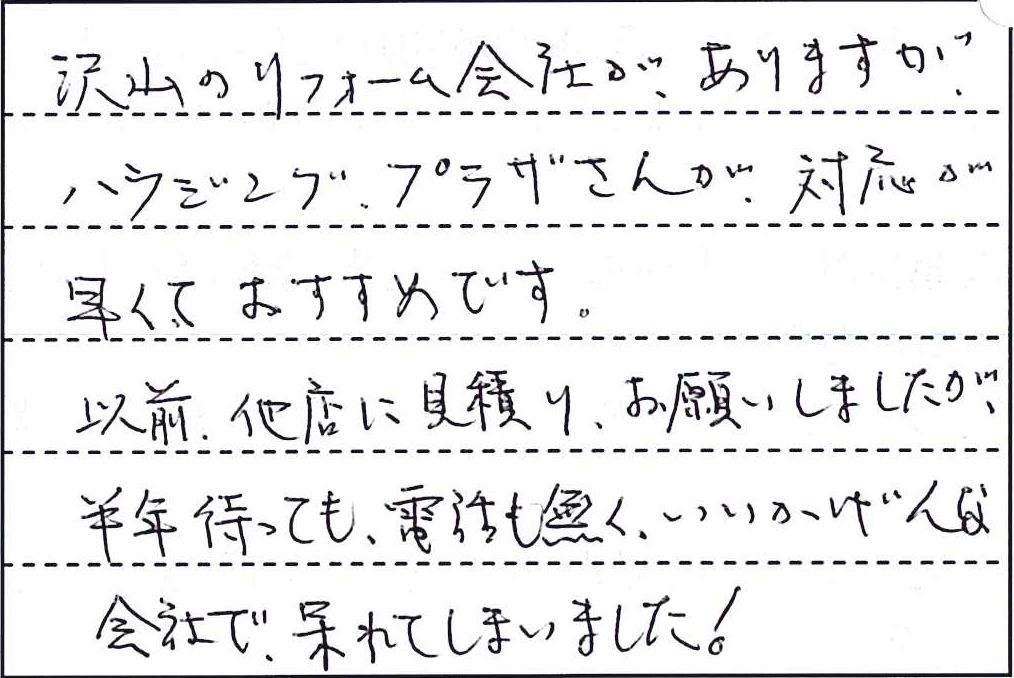 沢山のリフォーム会社が、ありますが、
ハウジング、プラザさんが、対応が
早くて おすすめです。
以前、他店に見積り、お願いしましたが、
半年待っても、電話も無く、いいかげんな
会社で、呆れてしまいました！